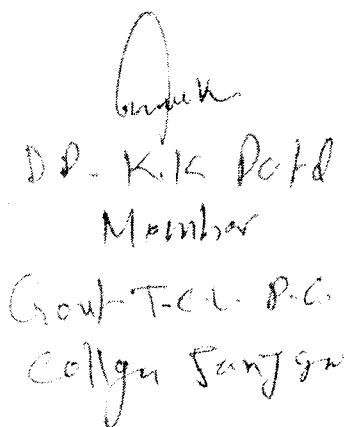 DR. K.K Patel
Member
Govt T.C.L. P.G.
College Janjgir